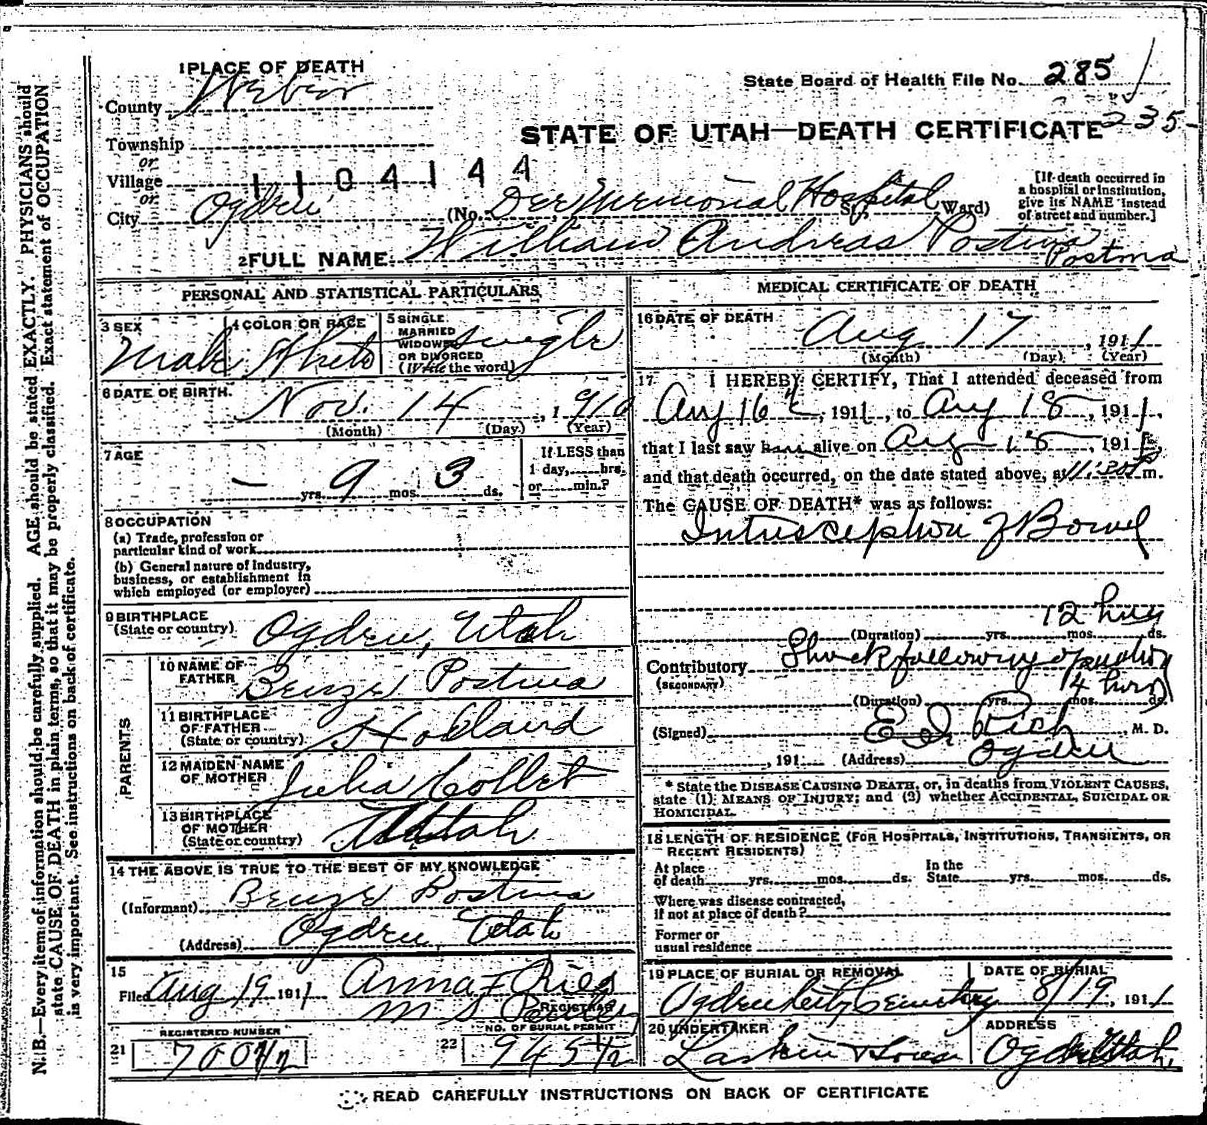 1 PLACE OF DEATH
State Board of Health File No. 285
County Weber
235-
STATE OF UTAH—DEATH CERTIFICATE
Township
or
Village 1104144
or
City Ogden (No. Dee Memorial Hospital St., Ward)
[If death occurred in
a hospital or institution,
give its NAME instead
of street and number.]
2 FULL NAME William Andreas Postma
Postma
PERSONAL AND STATISTICAL PARTICULARS
3 SEX Male
4 COLOR OR RACE White
5 SINGLE
MARRIED
WIDOWED
OR DIVORCED
(Write the word) Single
6 DATE OF BIRTH. Nov. 14, 1910
(Month) (Day) (Year)
7 AGE
— yrs. 9 mos. 3 ds.
If LESS than
1 day, hrs.
or min.?
8 OCCUPATION
(a) Trade, profession or
particular kind of work
(b) General nature of industry,
business, or establishment in
which employed (or employer)
9 BIRTHPLACE
(State or country) Ogden, Utah
PARENTS
10 NAME OF
FATHER Postma
11 BIRTHPLACE
OF FATHER
(State or country) Holland
12 MAIDEN NAME
OF MOTHER Julia Collet
13 BIRTHPLACE
OF MOTHER
(State or country) Utah
14 THE ABOVE IS TRUE TO THE BEST OF MY KNOWLEDGE
(Informant) Postma
(Address) Ogden, Utah
15
Filed Aug 19 1911 Anna F Ries
M S
REGISTRAR
REGISTERED NUMBER
21 700 1/2
NO. OF BURIAL PERMIT
22 945 1/2
MEDICAL CERTIFICATE OF DEATH
16 DATE OF DEATH Aug 17, 1911
(Month) (Day) (Year)
17 I HEREBY CERTIFY, That I attended deceased from
Aug 16, 1911, to Aug 18, 1911,
that I last saw him alive on Aug 18, 1911,
and that death occurred, on the date stated above, at 11:20 P m.
The CAUSE OF DEATH* was as follows:
Intusception of Bowel
12 hrs
(Duration) yrs. mos. ds.
Contributory Shock following operation
(SECONDARY)
14 hrs
(Duration) yrs. mos. ds.
(Signed) E I Rich, M. D.
, 191 (Address) Ogden
* State the DISEASE CAUSING DEATH, or, in deaths from VIOLENT CAUSES,
state (1) MEANS OF INJURY; and (2) whether ACCIDENTAL, SUICIDAL OR
HOMICIDAL.
18 LENGTH OF RESIDENCE (FOR HOSPITALS, INSTITUTIONS, TRANSIENTS, OR
RECENT RESIDENTS)
At place
of death yrs. mos. ds.
In the
State yrs. mos. ds.
Where was disease contracted,
if not at place of death?
Former or
usual residence
19 PLACE OF BURIAL OR REMOVAL
Ogden City Cemetery
DATE OF BURIAL
8/19, 1911
20 UNDERTAKER
Larkin & Sons
ADDRESS
Ogden Utah.
READ CAREFULLY INSTRUCTIONS ON BACK OF CERTIFICATE
N. B.—Every item of information should be carefully supplied. AGE should be stated EXACTLY. PHYSICIANS should
state CAUSE OF DEATH in plain terms, so that it may be properly classified. Exact statement of OCCUPATION
is very important. See instructions on back of certificate.